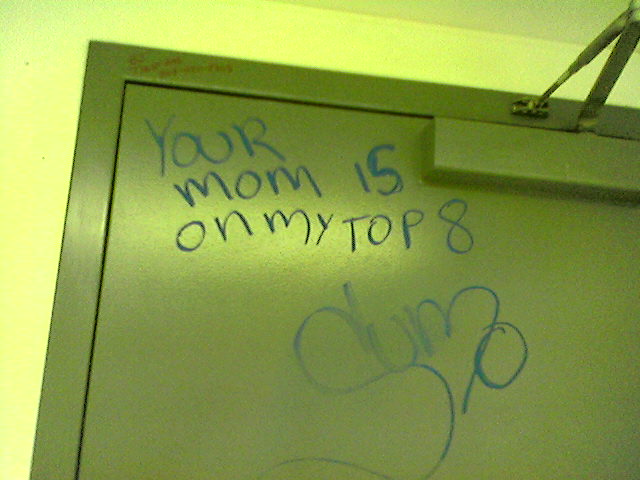 YOUR
mom is
on my TOP 8